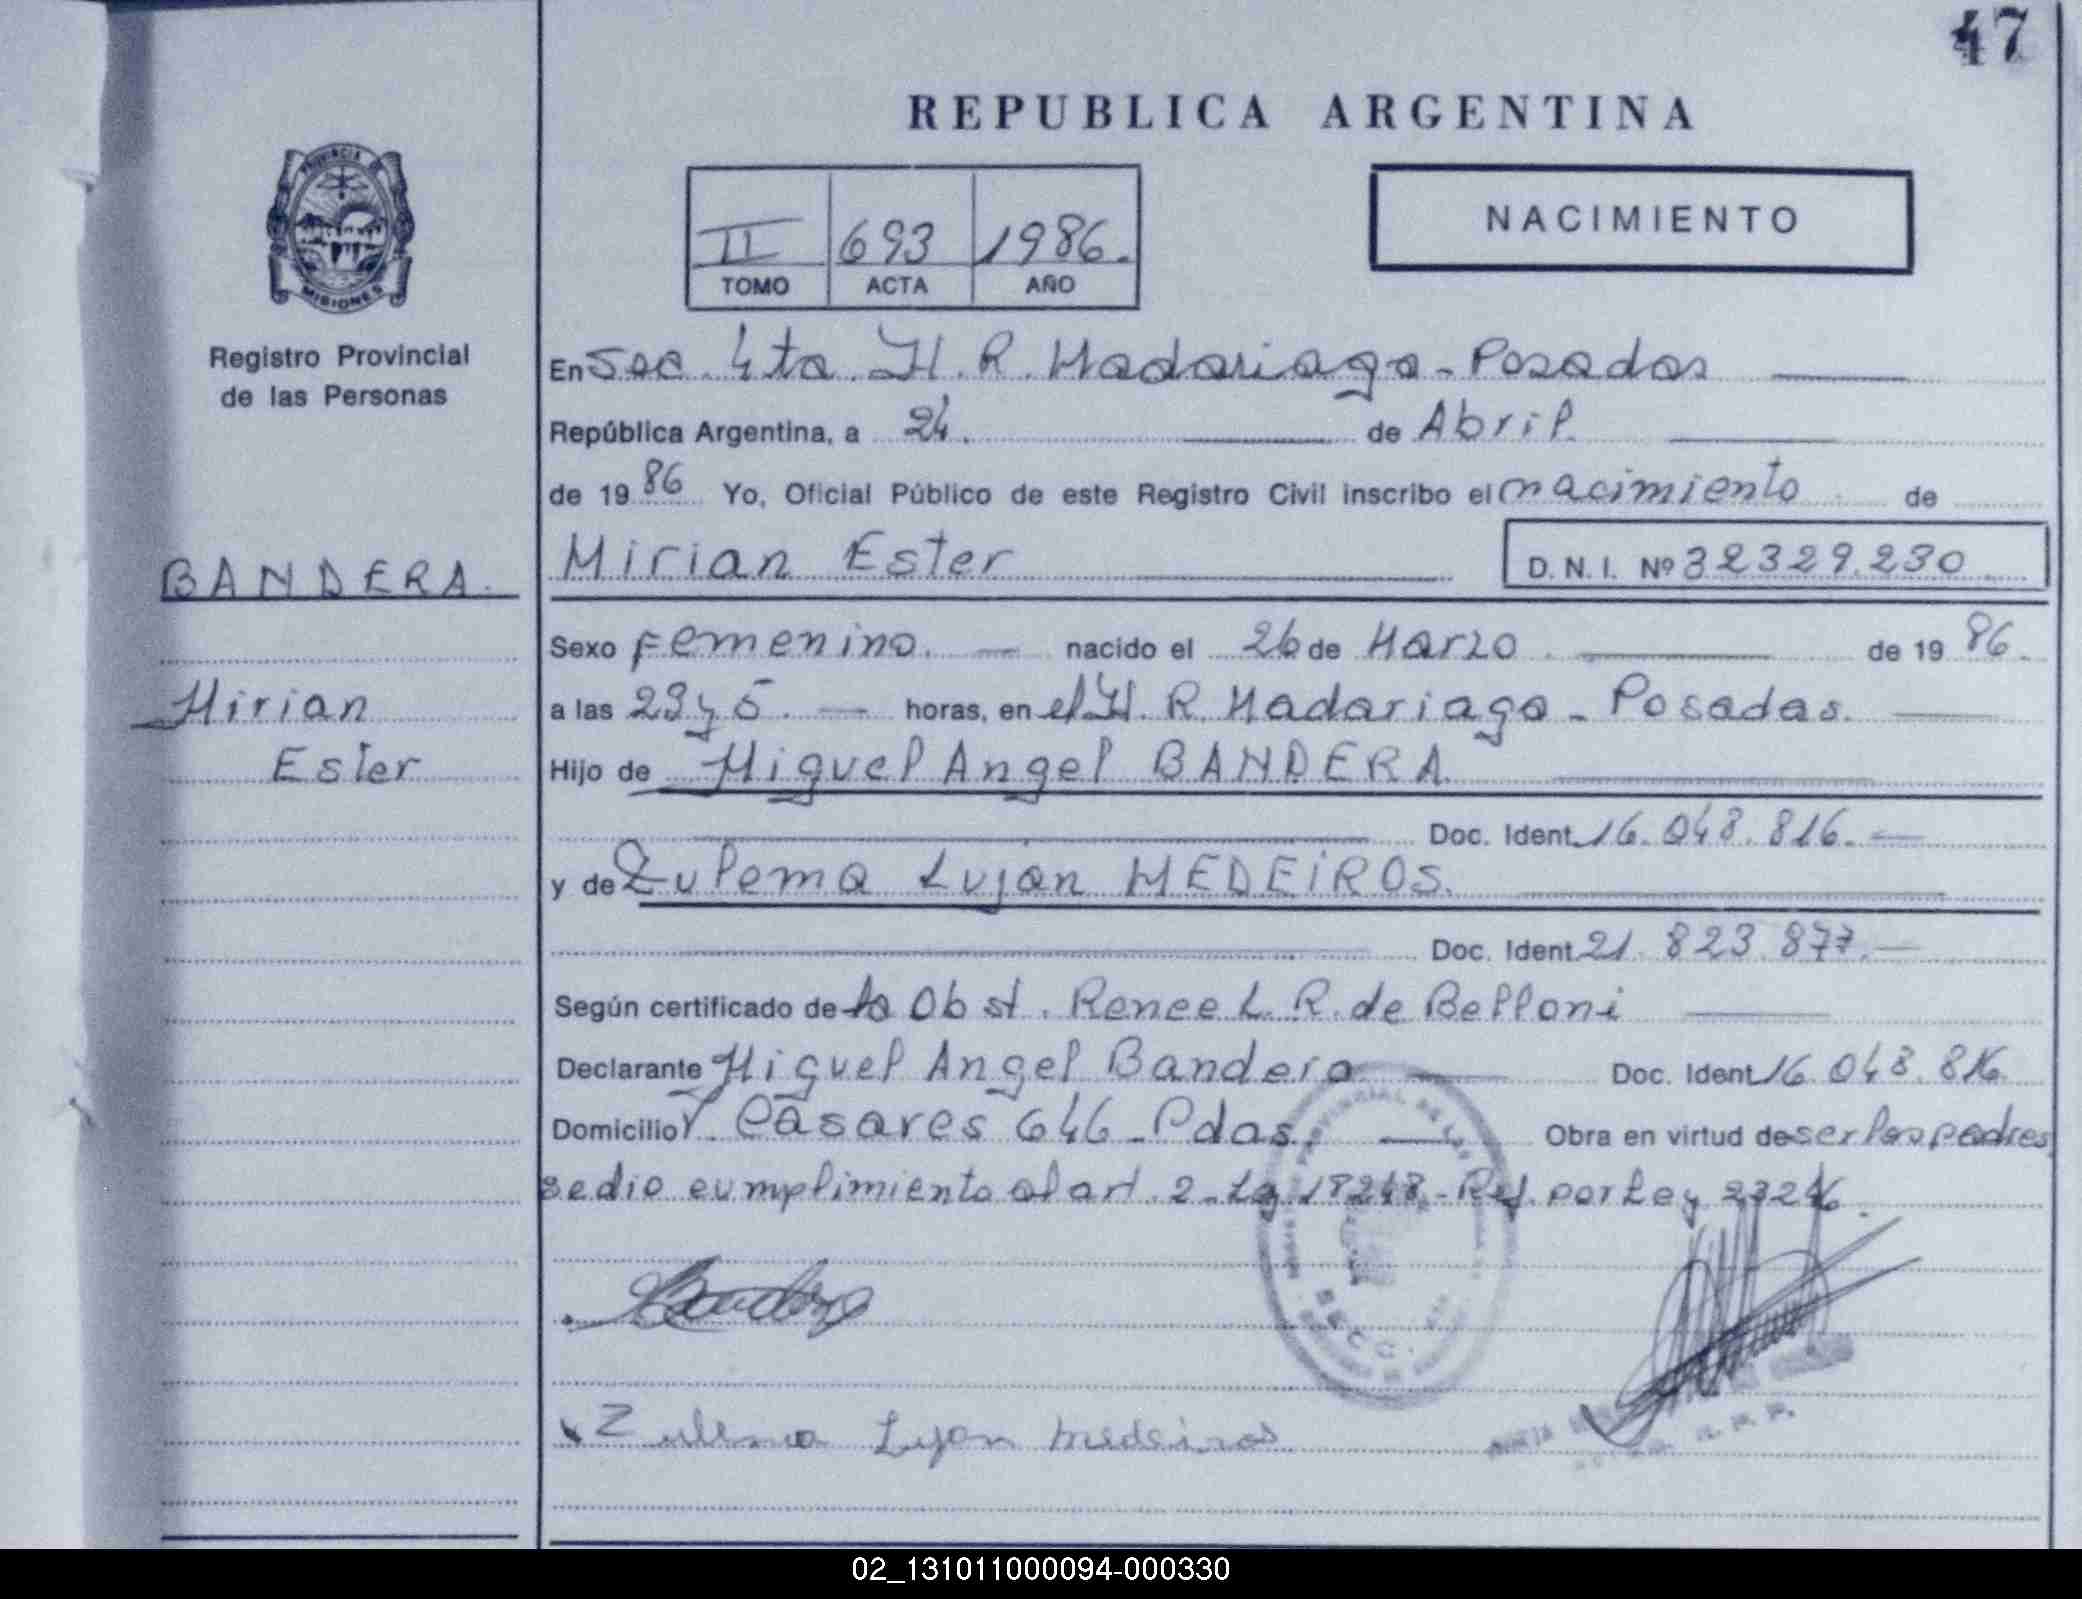 47
REPUBLICA ARGENTINA
PROVINCIA DE
MISIONES
Registro Provincial
de las Personas
II 693 1986.
TOMO ACTA AÑO
NACIMIENTO
En Sec. 4ta. H. R. Madariaga - Posadas
República Argentina, a 24. de Abril
de 1986 Yo, Oficial Público de este Registro Civil inscribo el nacimiento de
BANDERA.
Mirian Ester D. N. I. Nº 32329.230
Sexo Femenino. nacido el 26 de Marzo de 1986.
Mirian
a las 23 y 5. horas, en el H. R. Madariaga - Posadas.
Ester
Hijo de Miguel Angel BANDERA
Doc. Ident. 16.048.816.
y de Zulema Lujan MEDEIROS.
Doc. Ident. 21.823.877.
Según certificado de la Obst. Renee L. R. de Belloni
Declarante Miguel Angel Bandera Doc. Ident. 16.048.816
Domicilio Casares 646 - Pdas. Obra en virtud de ser los padres
se dio cumplimiento al art. 2 - Ley 18248 - Ref. por Ley
SECC.
Zulema Lujan Medeiros
02_131011000094-000330